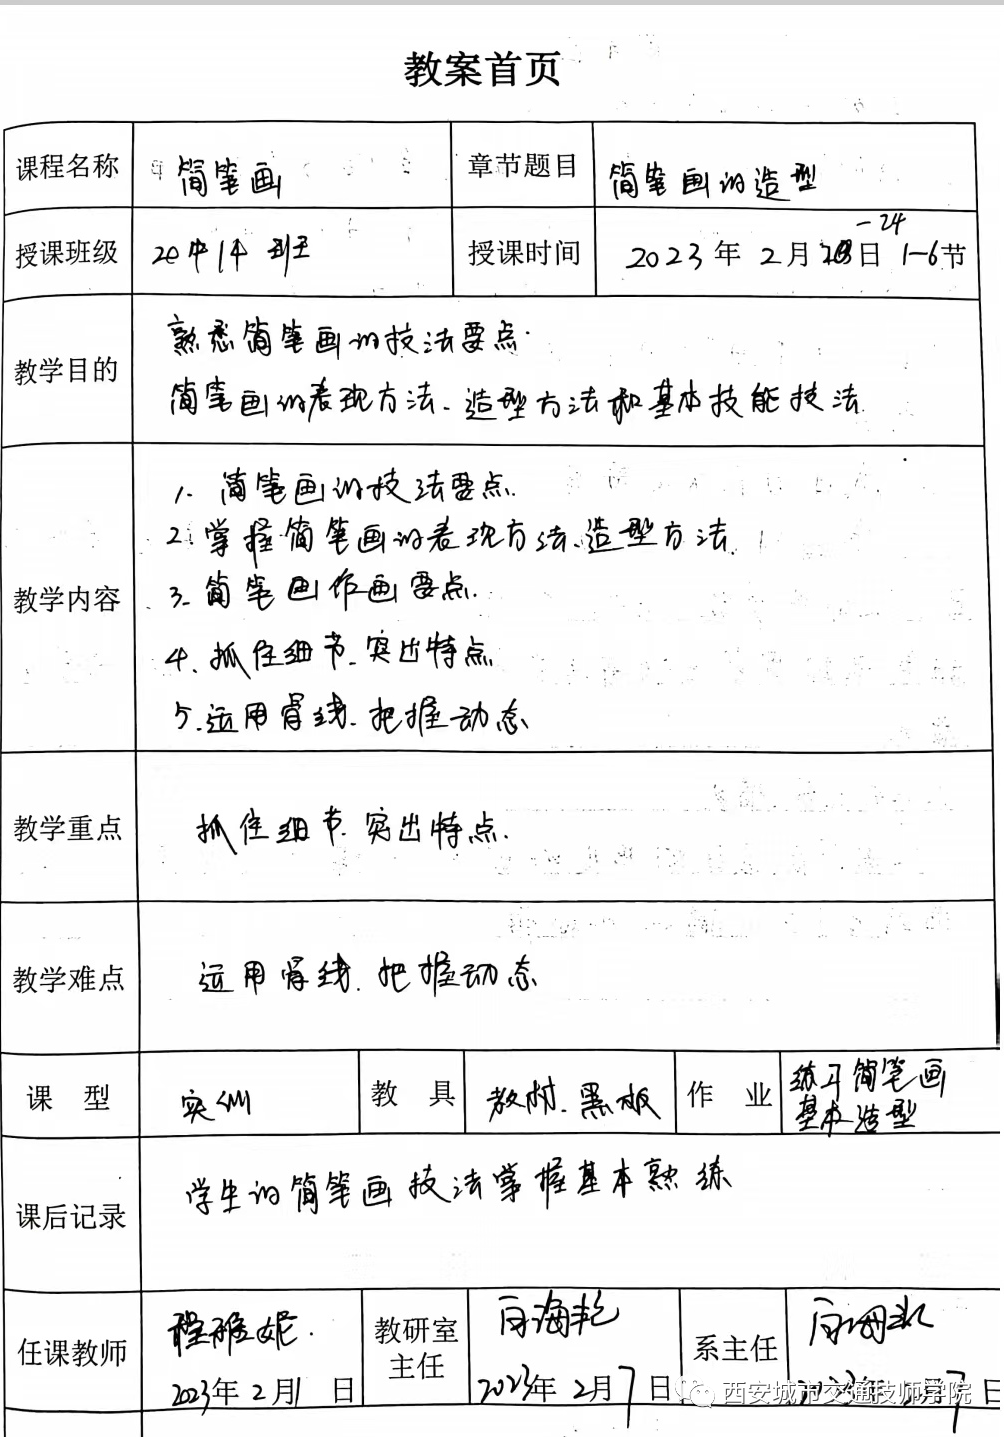 教案首页
课程名称 简笔画 章节题目 简笔画的造型
-24
授课班级 20中1本 班 授课时间 2023年2月20日 1-6节
熟悉简笔画的技法要点.
教学目的
简笔画的表现方法、造型方法和基本技能技法
1. 简笔画的技法要点.
2. 掌握简笔画的表现方法、造型方法.
教学内容
3. 简笔画作画要点.
4. 抓住细节、突出特点
5. 运用骨线、把握动态
教学重点 抓住细节、突出特点.
教学难点 运用骨线、把握动态
课 型 实训 教 具 教材、黑板 作 业 练习简笔画
基本造型
学生的简笔画技法掌握基本熟练
课后记录
任课教师 程雅妮. 教研室
主任 白海艳 系主任
2023年2月1日 2023年2月7日
西安城市交通技师学院